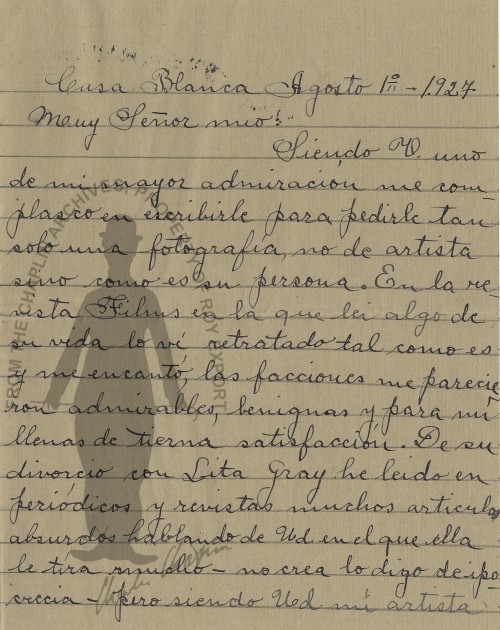 Casa Blanca Agosto 1º - 1927
Muy Señor mio:
Siendo V. uno
de mi mayor admiración me com-
plasco en escribirle para pedirle tan
solo una fotografía, no de artista
sino como es su persona. En la re-
vista Films en la que leí algo de
su vida lo ví retratado tal como es
y me encantó, las facciones me parecie
ron admirables, benignas y para mí
llenas de tierna satisfacción. De su
divorcio con Lita Gray he leido en
periódicos y revistas muchos articulos
absurdos hablando de Ud en el que ella
le tira mucho - no crea lo digo de ipo
crecia - pero siendo Ud mi artista
FROM THE CHAPLIN ARCHIVES, PROPERTY ROY EXPORT